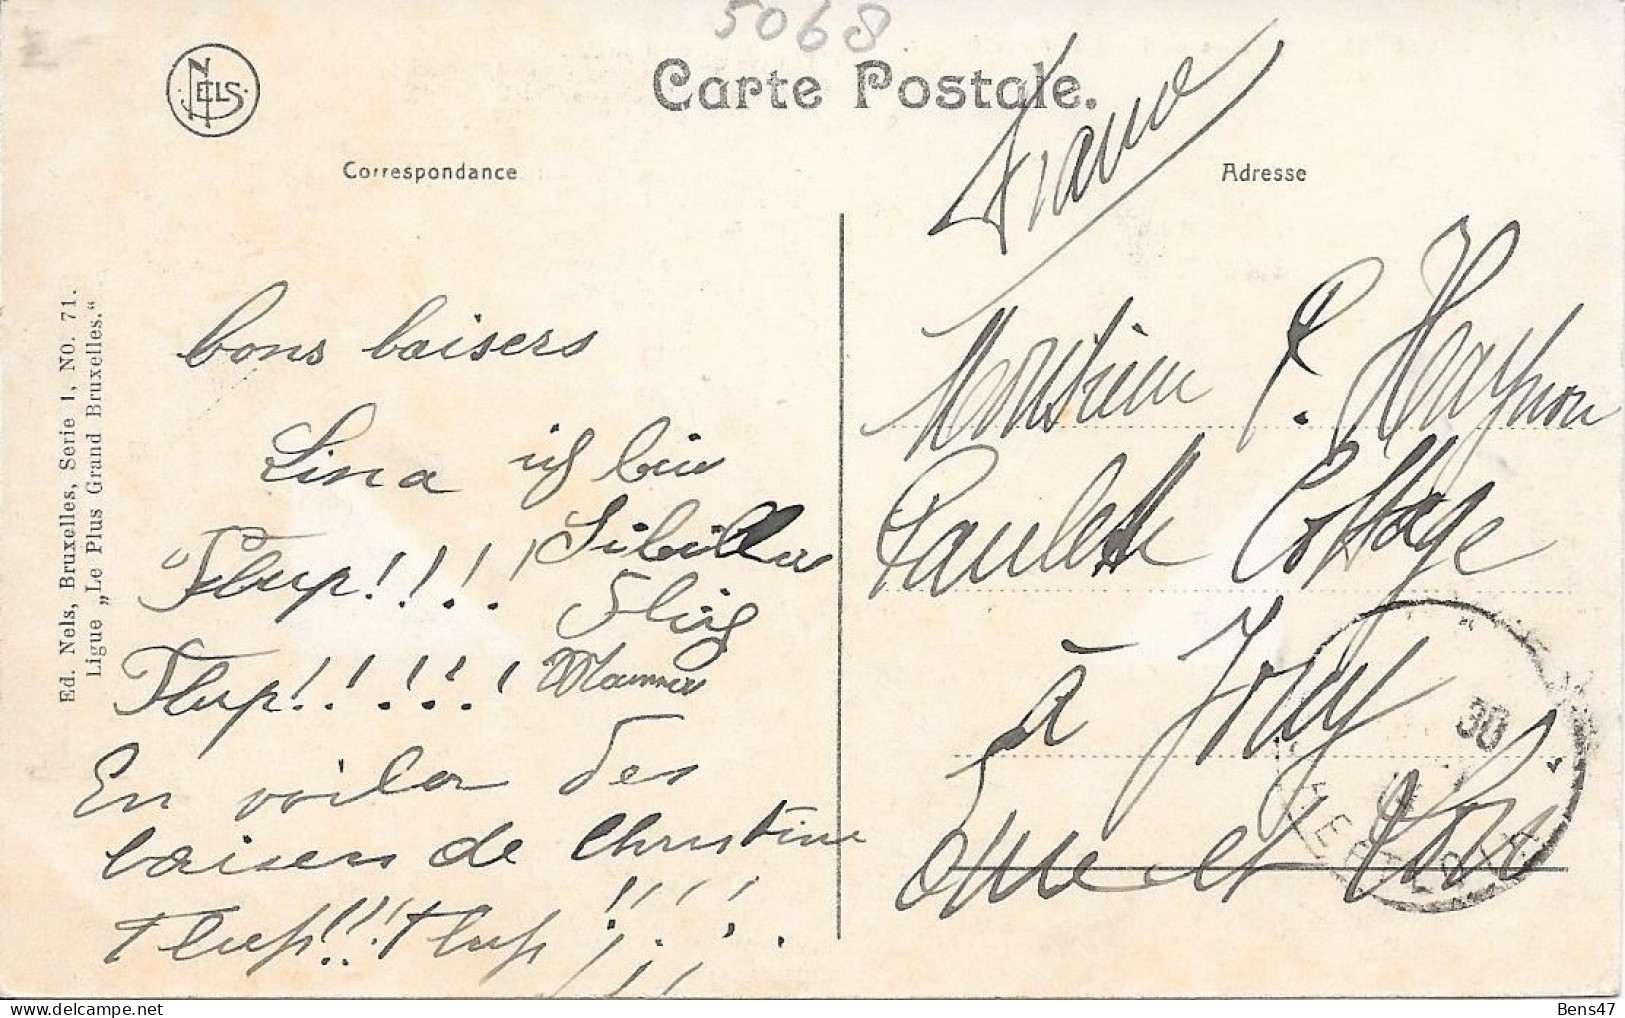 5068
NELS
Carte Postale.
France
Correspondance
Adresse
Ed. Nels, Bruxelles, Serie 1, No. 71.
Ligue „Le Plus Grand Bruxelles.“
bons baisers
Lina ich bin
Sibilla
"Flup!!!!
Flup!!!!!
En voila des
baisers de Christine
Flup!!! Flup !!!!
Monsieur P. Haynon
Paulette Cottage
à Jouy
Oise
30